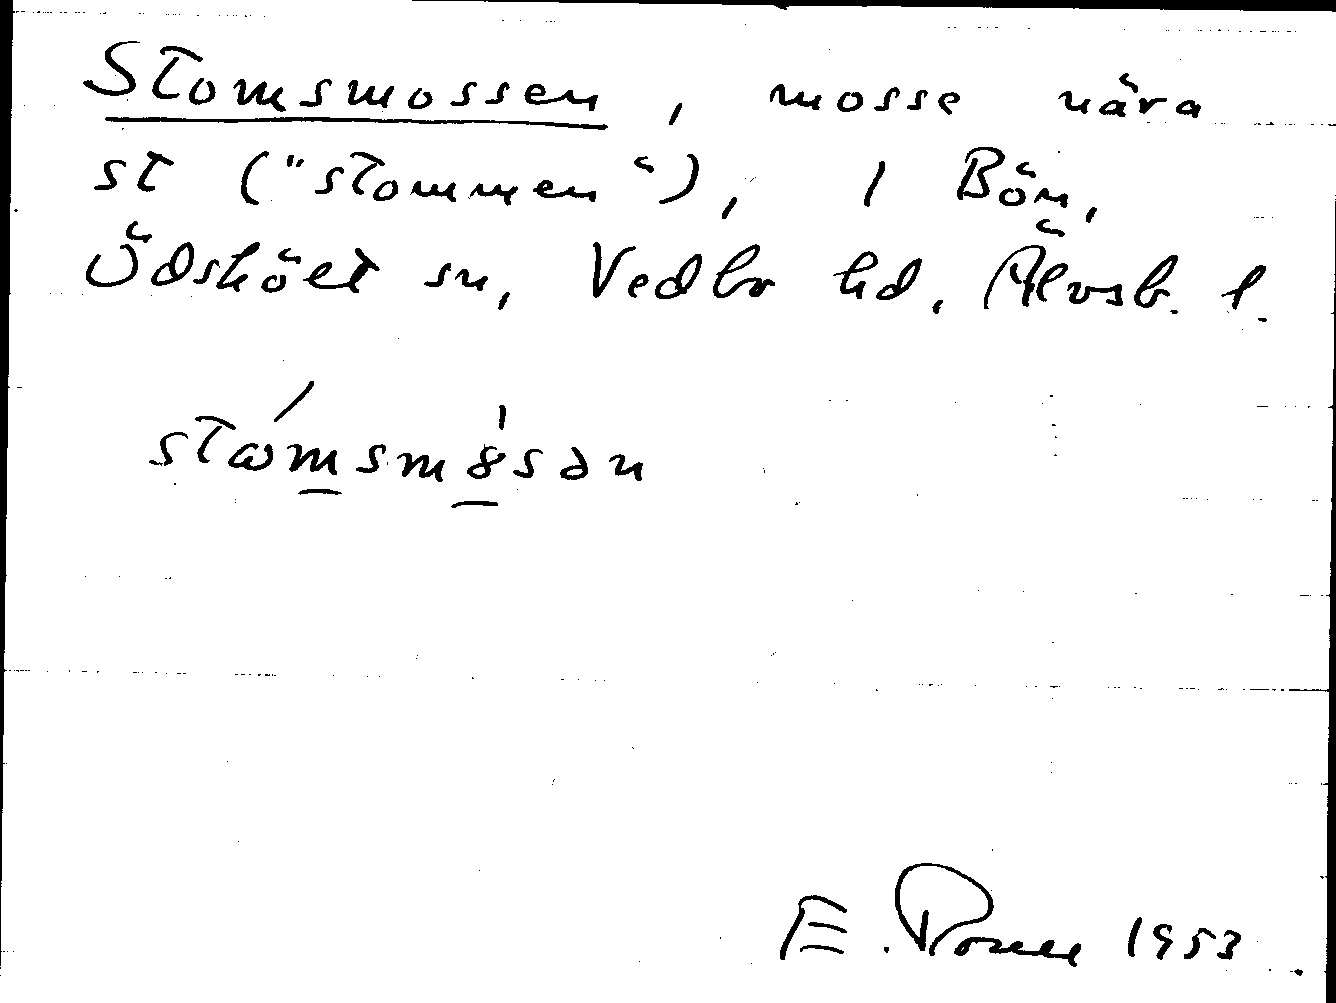 Stomsmossen, mosse nära
st ("stommen"), 1 Bön,
Ödsköet sn, Vedbo hd. Älvsb. l.
stωmsm8sən
E. 1953